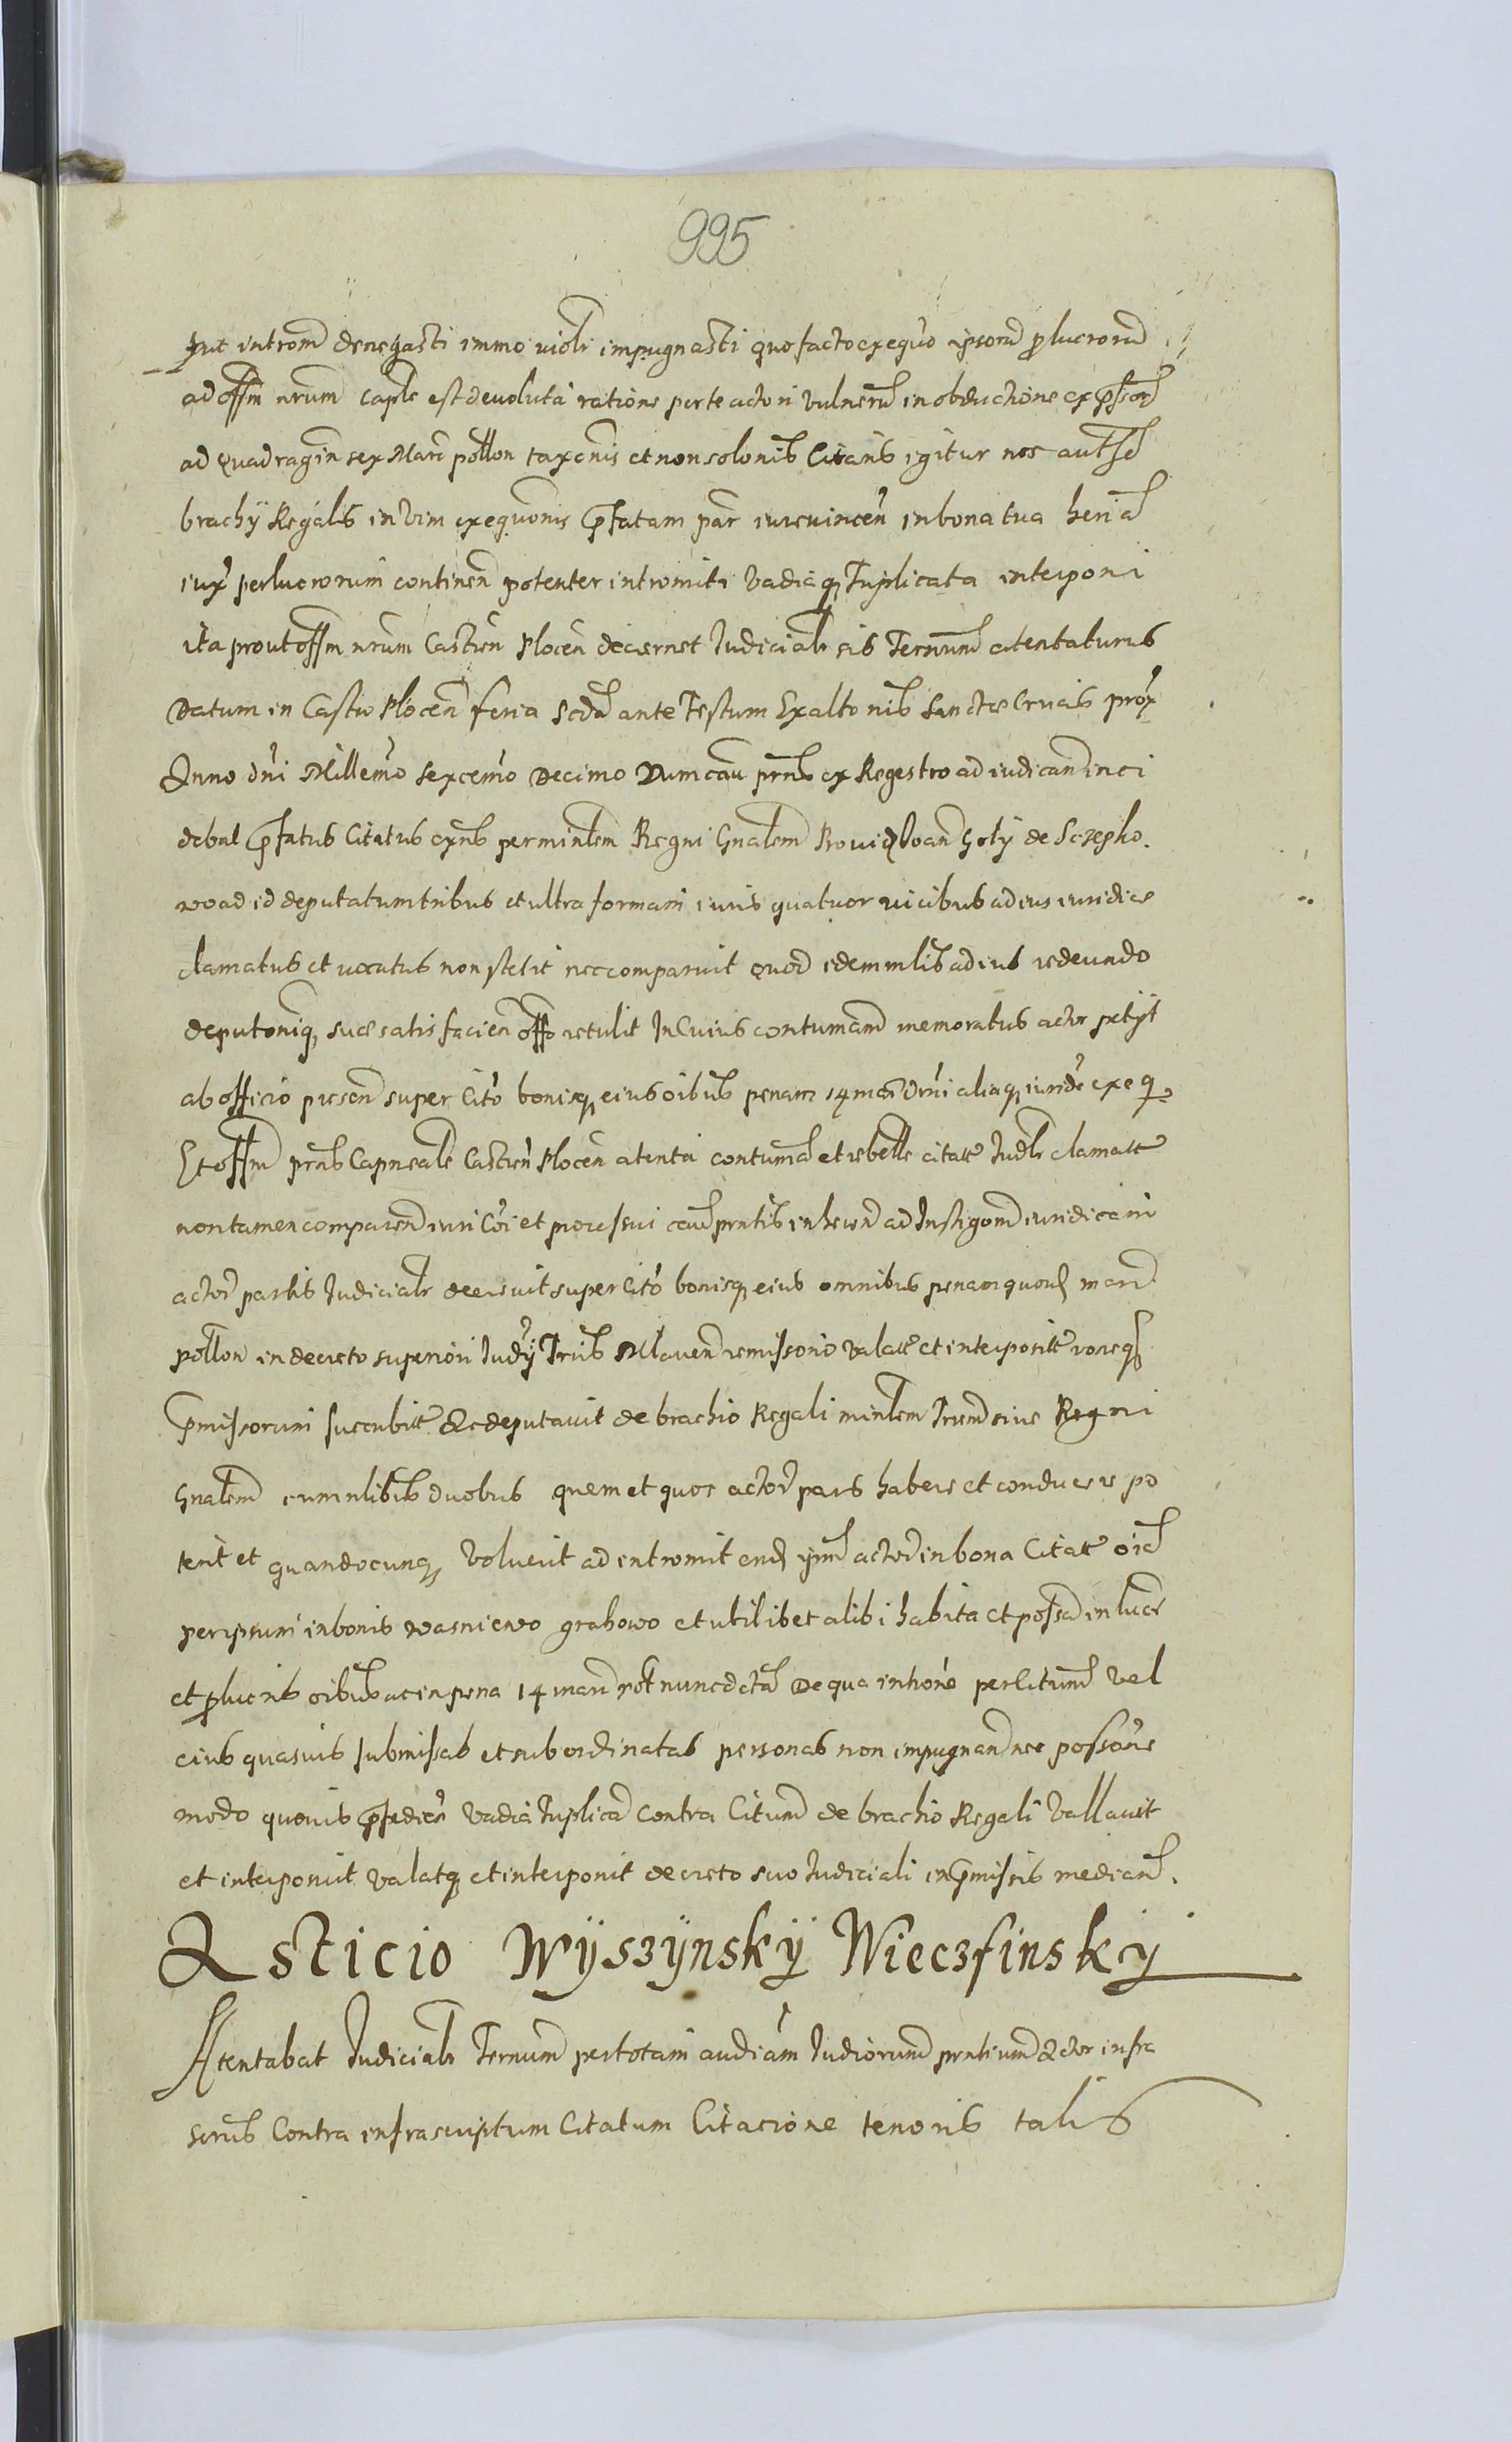 995
Intromi denegasti immo violr impugnasti quo facto exequo ipsorum plucrorum
ad offm nrum Caple est devoluta ratione parte actori vulnerum in obductione expssor
ad quadragin sex Marc pollon taxonis et non solonis Citaris igitur nos autte
brachÿ Regalis in vim exequonis pfatam par iurevincen in bona tua heria
iux perlucrorum continen potenter intromiti Vadiaq Triplicata interponi
ita prout offm nrum Castren Plocen decernet Judicialr sis Terminum atentaturus
Datum in Castro Plocen feria Scda ante Festum Exaltonis Sanctae Crucis prox
Anno dni Millemo sexcemo Decimo Dum cau prns ex Regestro ad iudicand inci
debat pfatus Citatus exns per minlem Regni Gnalem Provid Joan Goły de Szepko
wo ad id deputatum tribus et ultra formam iuris quatuor vicibus ad ius iuridice
clamatus et vocatus non stetit nec comparuit quod idem mlis ad ius redeundo
deputoniq suae satisfacien offo retulit In Cuius contumam memoratus actor petÿt
ab officio presen super Cito bonisq eius oibus penam 14 mar drni aliaq iuride exeq
Et offm prns Capneale Castren Plocen atenta contuma et rebelle citati Judlr clamati
non tamen comparen iuri Coi et processui caus prntis inheren ad Instigom iuridicam
actor partis Judicialr decrevit super Cito bonisq eius omnibus penam quord marc
pollon in decreto superiori Judÿ Trnis Mlaven remissorio valat et interposit roneq
pmissorum succubit Ac deputavit de brachio Regali minlem Tremd sive Regni
Gnalem cum nlibus duobus quem et quos actor pars habere et conducere po
terit et quandocunq voluerit ad intromitend ipm actor in bona Citati oia
per ipsum in bonis wasniewo grabowo et ubilibet alibi habita et possa in lucr
et plucris oibus ac in pena 14 marc pol nunc dcta De qua introne per Citum vel
eius quasvis submissas et subordinatas personas non impugnand nec possone
modo quovis pfedien vadia Triplica contra Citum de brachio Regali vallavit
et interponit valatq et interponit decreto suo Judiciali in pmissis median
Adsticio Wÿszÿnskÿ Wieczfinskÿ
Atentabat Judicialr Terminum per totam audiam Judiorum prntium Actor infra
scrus Contra infrascriptum Citatum Citacione tenoris talis